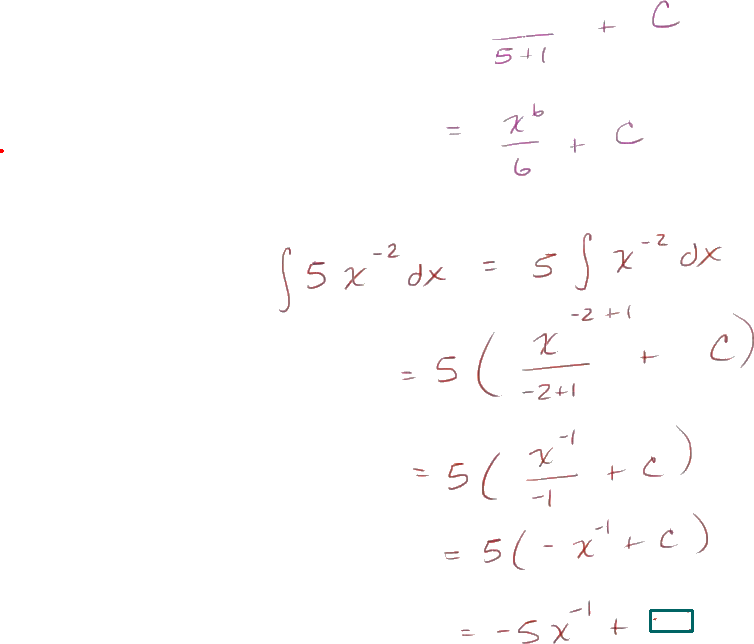 /(5+1) + C
= x^6/6 + C
∫ 5 x^-2 dx = 5 ∫ x^-2 dx
= 5 ( x^(-2+1)/(-2+1) + C )
= 5 ( x^-1/-1 + C )
= 5 ( - x^-1 + C )
= -5 x^-1 +